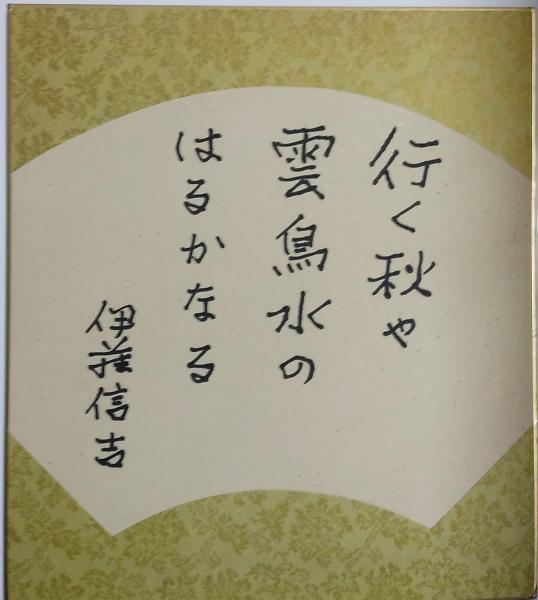 行く秋や
雲鳥水の
はるかなる
伊藤信吉